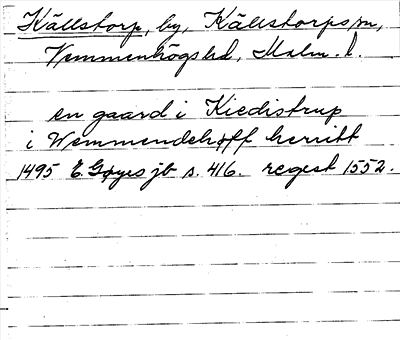 Källstorp, by, Källstorps sn,
Vemmenhögs hd, Malm. l.
en gaard i Kiedistrup
i Wemmendehøff herritt
1495 E. Gøyes jb s. 416. regest 1552.